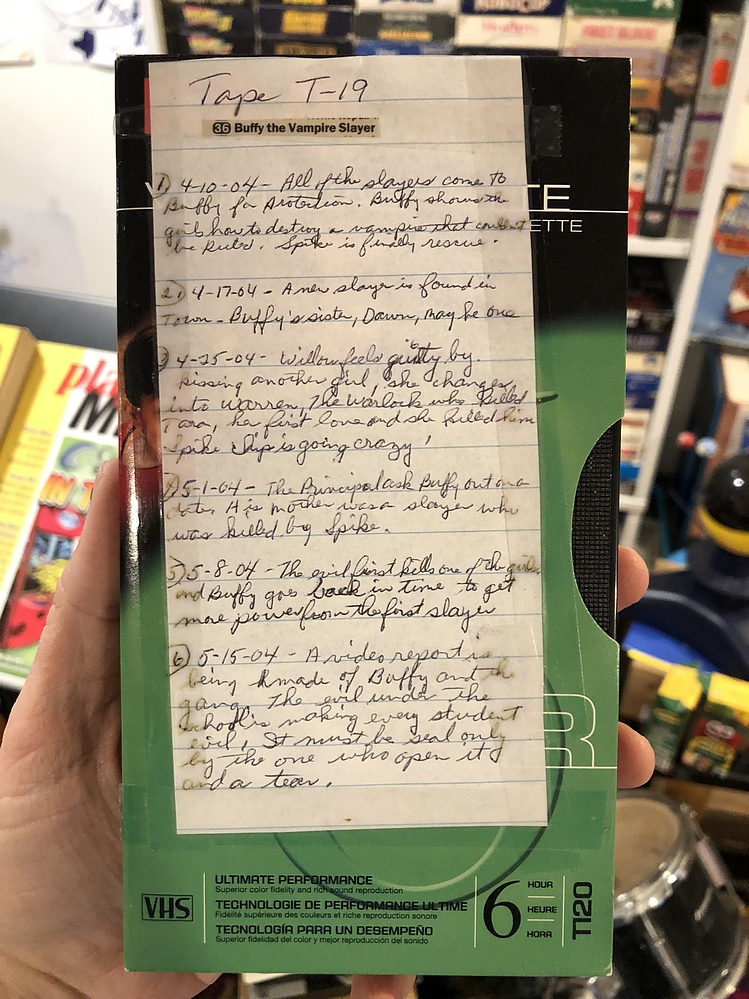 Tape T-19
36 Buffy the Vampire Slayer
1) 4-10-04 - All of the slayers come to
Buffy for Protection. Buffy shows the
girls how to destroy a vampire that couldn't
be killed. Spike is finally rescue.
2) 4-17-04 - A new slayer is found in
Town - Buffy's sister, Dawn, may be one
3) 4-25-04 - Willow feels guilty by
kissing another girl, she changes
into Warren, The Warlock who killed
Tara, her first love and she killed him
Spike chip is going crazy!
4) 5-1-04 - The Principal ask Buffy out on a
date. His mother was a slayer who
was killed by Spike.
5) 5-8-04 - The evil first kills one of the girls
and Buffy goes back in time to get
more power from the first slayer
6) 5-15-04 - A video report is
being made of Buffy and the
gang. The evil under the
school is making every student
evil, It must be seal only
by the one who open it
and a tear.
TE
ETTE
R
VHS
ULTIMATE PERFORMANCE
Superior color fidelity and rich sound reproduction
TECHNOLOGIE DE PERFORMANCE ULTIME
Fidélité supérieure des couleurs et riche reproduction sonore
TECNOLOGÍA PARA UN DESEMPEÑO
Superior fidelidad del color y mejor reproducción del sonido
6
HOUR
HEURE
HORA
T120
pla
M
IN
FIRST BLOOD